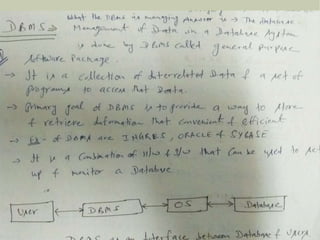 What the DBMS is managing Answer is → The database.
DBMS ⇒ Management of Data in a Database System
is done by DBMS called general purpose
software package.
→ It is a collection of interrelated Data & a set of
programs to access that Data.
→ Primary goal of DBMS is to provide a way to store
& retrieve information that convenient & efficient
→ Ex- of DBMS are INGRES, ORACLE & SYBASE
→ It is a Combination of H/w & S/w that Can be used to set
up & monitor a Database.
User DBMS OS Database
DBMS is an Interface between Database & User